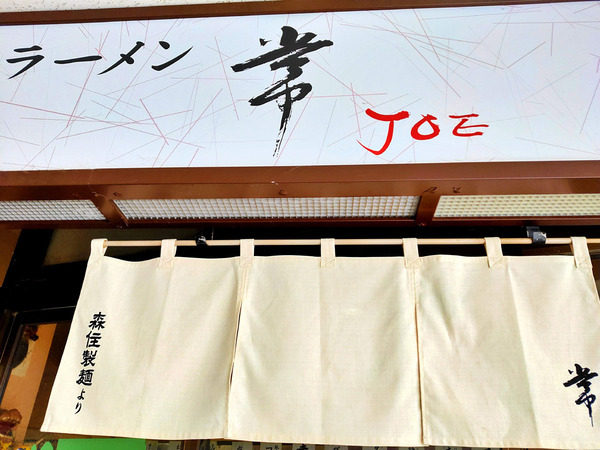 ラーメン 常
JOE
森住製麺より
常